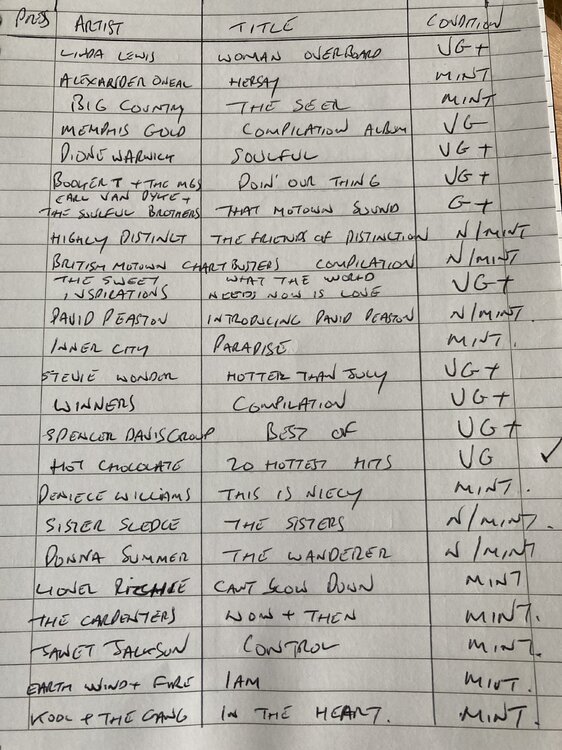 PRESS ARTIST TITLE CONDITION
LINDA LEWIS WOMAN OVERBOARD VG+
ALEXARIDER ONEAL HERSAY MINT
BIG COUNTRY THE SEER MINT
MEMPHIS GOLD COMPILATION ALBUM VG
DIONE WARWICK SOULFUL VG+
BOOKER T + THE MGS DOIN' OUR THING VG+
EARL VAN DYKE +
THE SOULFUL BROTHERS THAT MOTOWN SOUND G+
HIGHLY DISTINCT THE FRIENDS OF DISTINCTION N/MINT
BRITISH MOTOWN CHARTBUSTERS COMPILATION N/MINT
THE SWEET WHAT THE WORLD
INSPIRATIONS NEEDS NOW IS LOVE VG+
DAVID PEASTON INTRODUCING DAVID PEASTON N/MINT.
INNER CITY PARADISE MINT.
STEVIE WONDER HOTTER THAN JULY VG+
WINNERS COMPILATION VG+
SPENCER DAVIS GROUP BEST OF VG+
HOT CHOCOLATE 20 HOTTEST HITS VG ✓
DENIECE WILLIAMS THIS IS NIECY MINT.
SISTER SLEDGE THE SISTERS N/MINT.
DONNA SUMMER THE WANDERER N/MINT
LIONEL RITCHIE CANT SLOW DOWN MINT
THE CARPENTERS NOW + THEN MINT.
JANET JACKSON CONTROL MINT.
EARTH WIND + FIRE I AM MINT.
KOOL + THE GANG IN THE HEART. MINT.